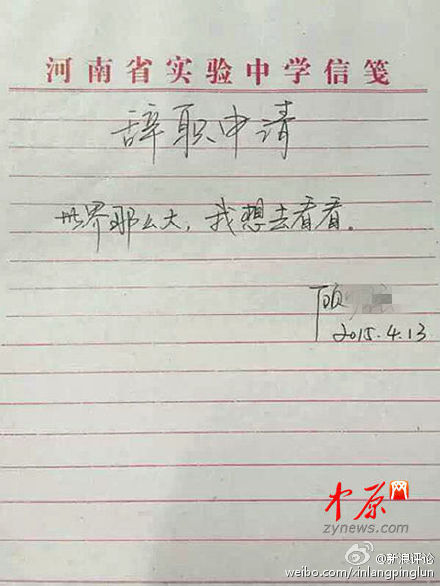 河南省实验中学信笺
辞职申请
世界那么大，我想去看看.
顾
2015.4.13
中原网
zynews.com
@新浪评论
weibo.com/xinlangpinglun